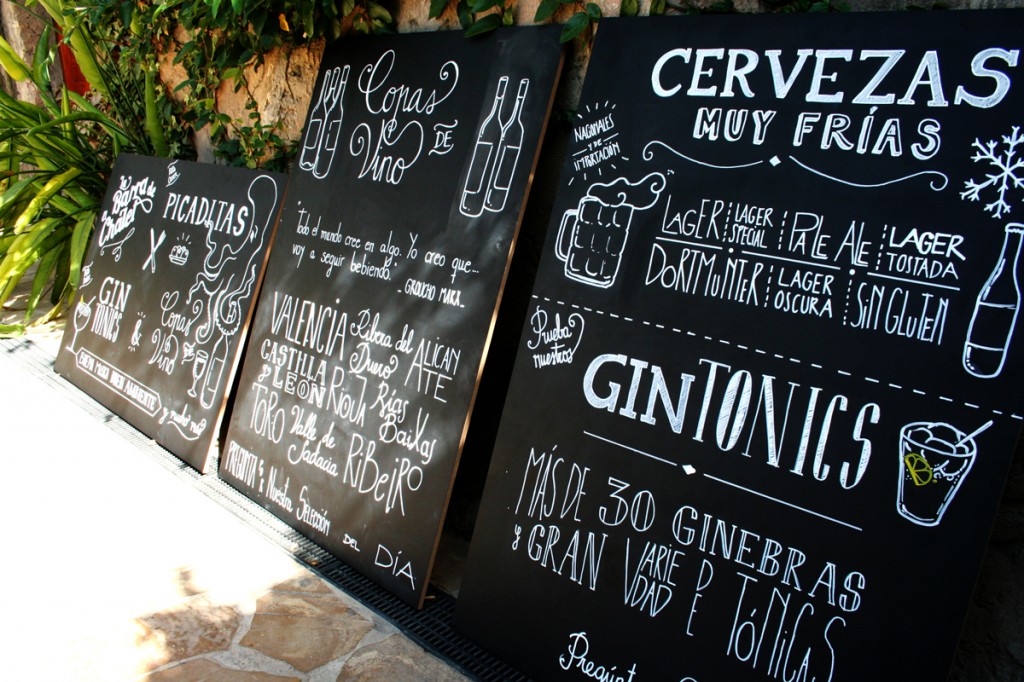 La
Barra de
Chalet
PICADITAS
GIN
TONICS
&
Copas
de
Vino
BUEN BUEN AMBIENTE
Copas
DE
Vino
"Todo el mundo cree en algo. Yo creo que...
voy a seguir bebiendo."
GROUCHO MARX
VALENCIA
Ribera del
Duero
ALICAN
TE
CASTILLA
y LEÓN
RIOJA
Rías
Baixas
TORO
Valle de
Sadacia
RIBEIRO
PREGUNTA x Nuestra SELECCIÓN
DEL DÍA
CERVEZAS
MUY FRÍAS
NACIONALES
Y DE
IMPORTACIÓN
LAGER
LAGER
SPECIAL
PALE ALE
LAGER
TOSTADA
DORTMUNTER
LAGER
OSCURA
SIN GLUTEN
Prueba
nuestros
GINTONICS
MÁS DE 30 GINEBRAS
y GRAN VARIEDAD DE TÓNICAS
B
Pregúnt